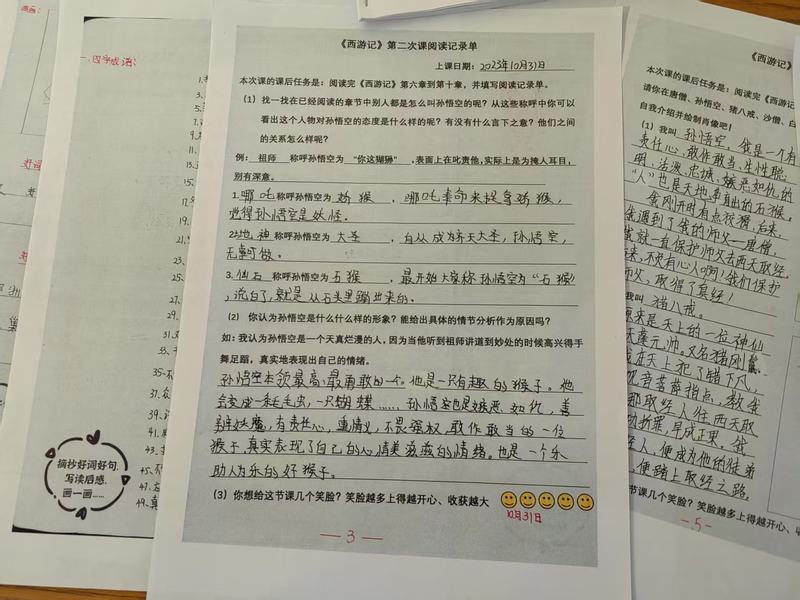 一.四字成语:
摘抄好词好句,
写读后感.
画一画......
35.
37.
39.
41.
43.
45.
47.
49.
《西游记》第二次课阅读记录单
上课日期: 2023年10月31日
本次课的课后任务是:阅读完《西游记》第六章到第十章,并填写阅读记录单。
(1) 找一找在已经阅读的章节中别人都是怎么叫孙悟空的呢?从这些称呼中你可以
看出这个人物对孙悟空的态度是什么样的呢?有没有什么言下之意?他们之间
的关系怎么样呢?
例: 祖师 称呼孙悟空为 “你这猢狲” ,表面上在叱责他,实际上是为掩人耳目,
别有深意。
1.哪吒称呼孙悟空为 妖猴 , 哪吒奉命来捉拿妖猴,
觉得孙悟空是妖怪。
2.地神 称呼孙悟空为 大圣 , 自从成为齐天大圣,孙悟空,
无事可做。
3.仙石 称呼孙悟空为 石猴 , 最开始大家称孙悟空为“石猴”
,说白了,就是从石头里蹦出来的。
(2) 你认为孙悟空是什么什么样的形象?能给出具体的情节分析作为原因吗?
如:我认为孙悟空是一个天真烂漫的人,因为当他听到祖师讲道到妙处的时候高兴得手
舞足蹈,真实地表现出自己的情绪。
孙悟空本领最高,最勇敢的一个。他是一只有趣的猴子。他
会变成一条毛毛虫,一只蝴蝶......孙悟空也是嫉恶如仇,善
辩妖魔,有责任心,重情义,不畏强权,敢作敢当的一位
猴子,真实表现了自己的心情美滋滋的情绪。也是一个乐
助人为乐的好猴子。
(3) 你想给这节课几个笑脸?笑脸越多上得越开心、收获越大
10月31日
—3—
《西游记》第
本次课的课后任务是:阅读完《西游
请你在唐僧、孙悟空、猪八戒、沙僧、白
自我介绍并绘制肖像吧!
(1) 我叫 孙悟空。我是一个有
责任心,敢作敢当,生性聪
明,活泼,忠诚,嫉恶如仇的
“人”也是天地孕育出的石猴。
我刚开时有点狡猾,后来,
我遇到了我的师父—唐僧,
我就一直保护师父去西天取经,
来,不火有心人啊!我们保护
师父,取得了真经!
我叫 猪八戒。
原来是天上的一位神仙
天蓬元帅。又名猪刚鬣
在天上犯了错下凡,
观音菩萨指点,教我
那取经人往西天取
功折罪,早成正果。我
经人,便成为他的徒弟
,便踏上取经之路。
节课几个笑脸?笑脸越多上得越开心、收
-5-